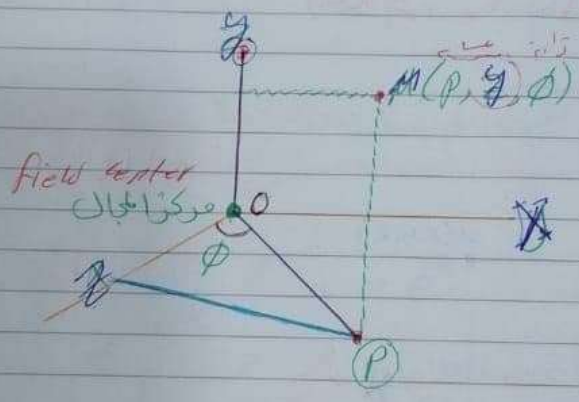 y
M(P, y, φ)
field center
مركز المجال O X
φ
z
P